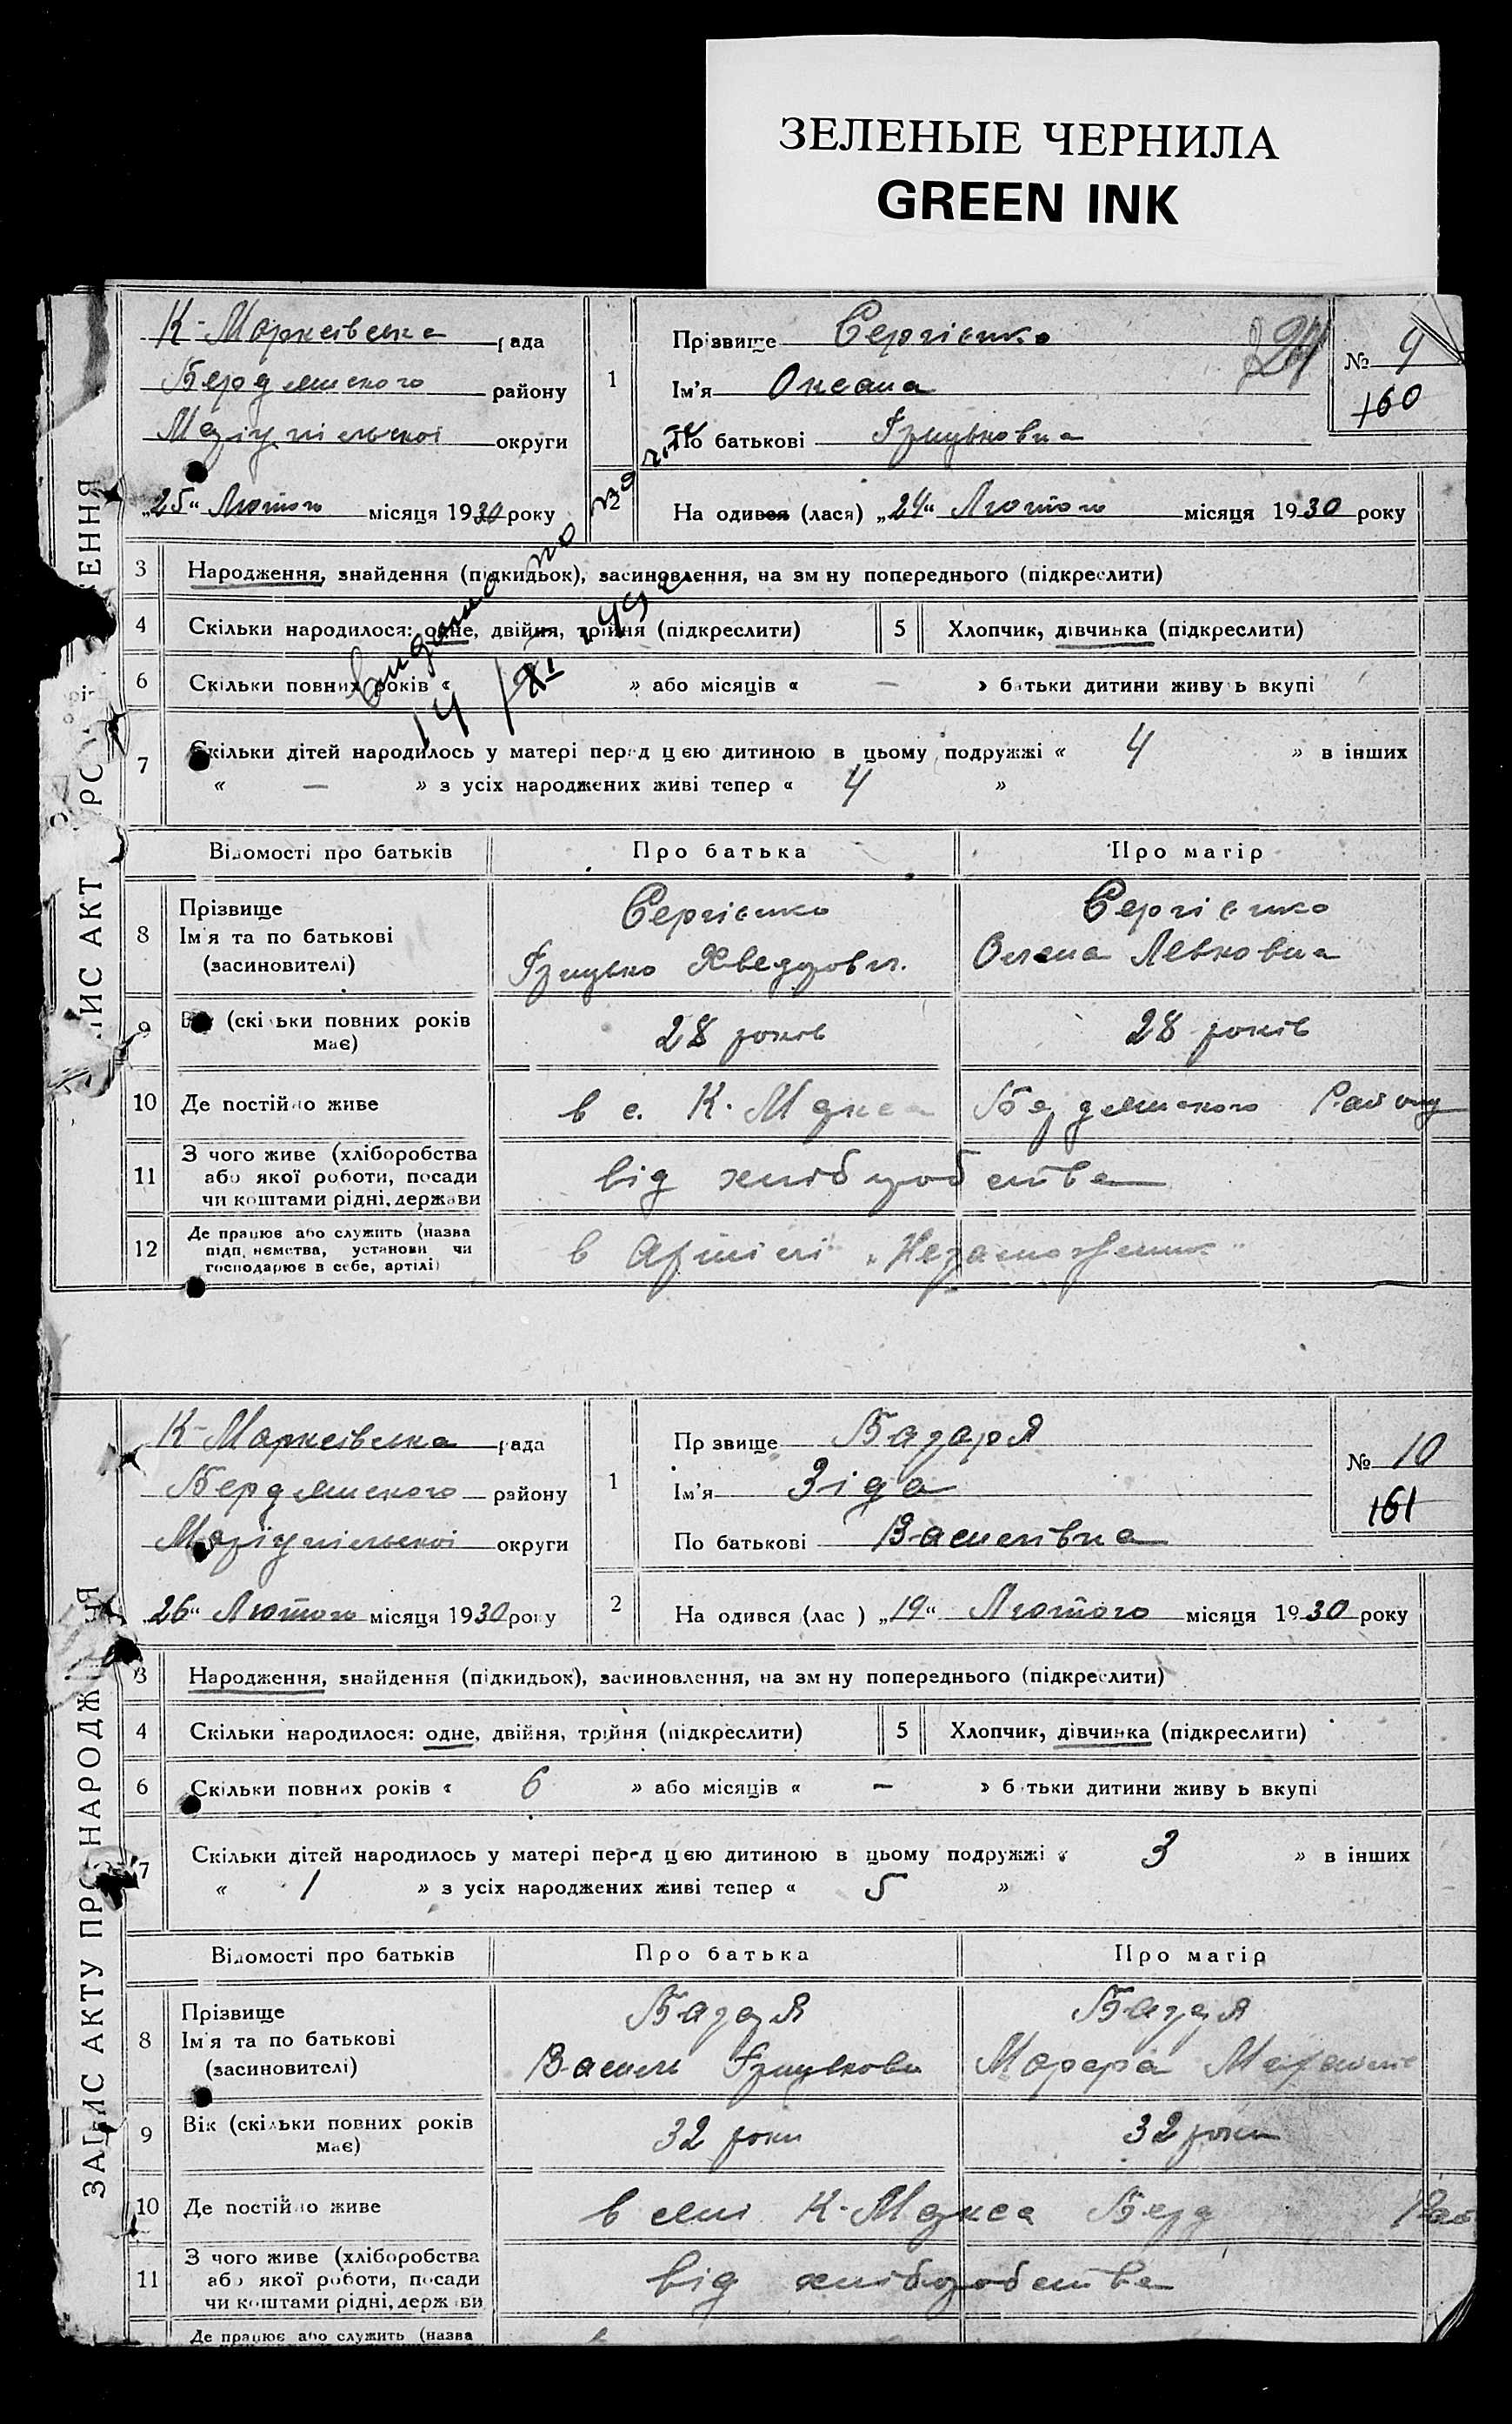 ЗЕЛЕНЫЕ ЧЕРНИЛА
GREEN INK
К-Марксівська рада
Бердянського району
Маріупільської округи
„25“ Лютого місяця 1930 року
1
Прізвище Сергієнко
Ім'я Оксана
По батькові Грицьковна
№ 9
160
2
На одився (лася) „24“ Лютого місяця 1930 року
3 Народження, знайдення (підкидьок), засиновлення, на зм ну попереднього (підкреслити)
4 Скільки народилося: одне, двійня, трійня (підкреслити)
5 Хлопчик, дівчинка (підкреслити)
6 Скільки повних років « » або місяців « — » батьки дитини живу ь вкупі
7 Скільки дітей народилось у матері перед цією дитиною в цьому подружжі « 4 » в інших
« — » з усіх народжених живі тепер « 4 »
Відомості про батьків Про батька Про матір
8 Прізвище
Ім'я та по батькові
(засиновителі)
Сергієнко
Грицько Хведорович.
Сергієнко
Олена Левковна
9 (скільки повних років
має)
28 років
28 років
10 Де постійно живе
в с. К. Маркса Бердянського Району
11 З чого живе (хліборобства
або якої роботи, посади
чи коштами рідні, держави
від хліборобства
12 Де працює або служить (назва
підп. ємства, установи чи
господарює в себе, артілі)
в Артілі „Незаможник“
К-Марксівська рада
Бердянського району
Маріупільської округи
„26“ Лютого місяця 1930 року
1
Пр звище Базаря
Ім'я Зіда
По батькові Василівна
№ 10
161
2
На одився (лас ) „19“ Лютого місяця 1930 року
3 Народження, знайдення (підкидьок), засиновлення, на зм ну попереднього (підкреслити)
4 Скільки народилося: одне, двійня, трійня (підкреслити)
5 Хлопчик, дівчинка (підкреслити)
6 Скільки повних років « 6 » або місяців « — » б тьки дитини живу ь вкупі
7 Скільки дітей народилось у матері перед цією дитиною в цьому подружжі « 3 » в інших
« 1 » з усіх народжених живі тепер « 5 »
Відомості про батьків Про батька Про матір
8 Прізвище
Ім'я та по батькові
(засиновителі)
Базаря
Василь Грицькови
Базаря
9 Вік (скільки повних років
має)
32 роки
32 роки
10 Де постійно живе
в селі К-Маркса Берд Рай
11 З чого живе (хліборобства
або якої роботи, посади
чи коштами рідні, держ ви
від хліборобства
Де працює або служить (назва
ЗАПИС АКТУ ПРО НАРОДЖ